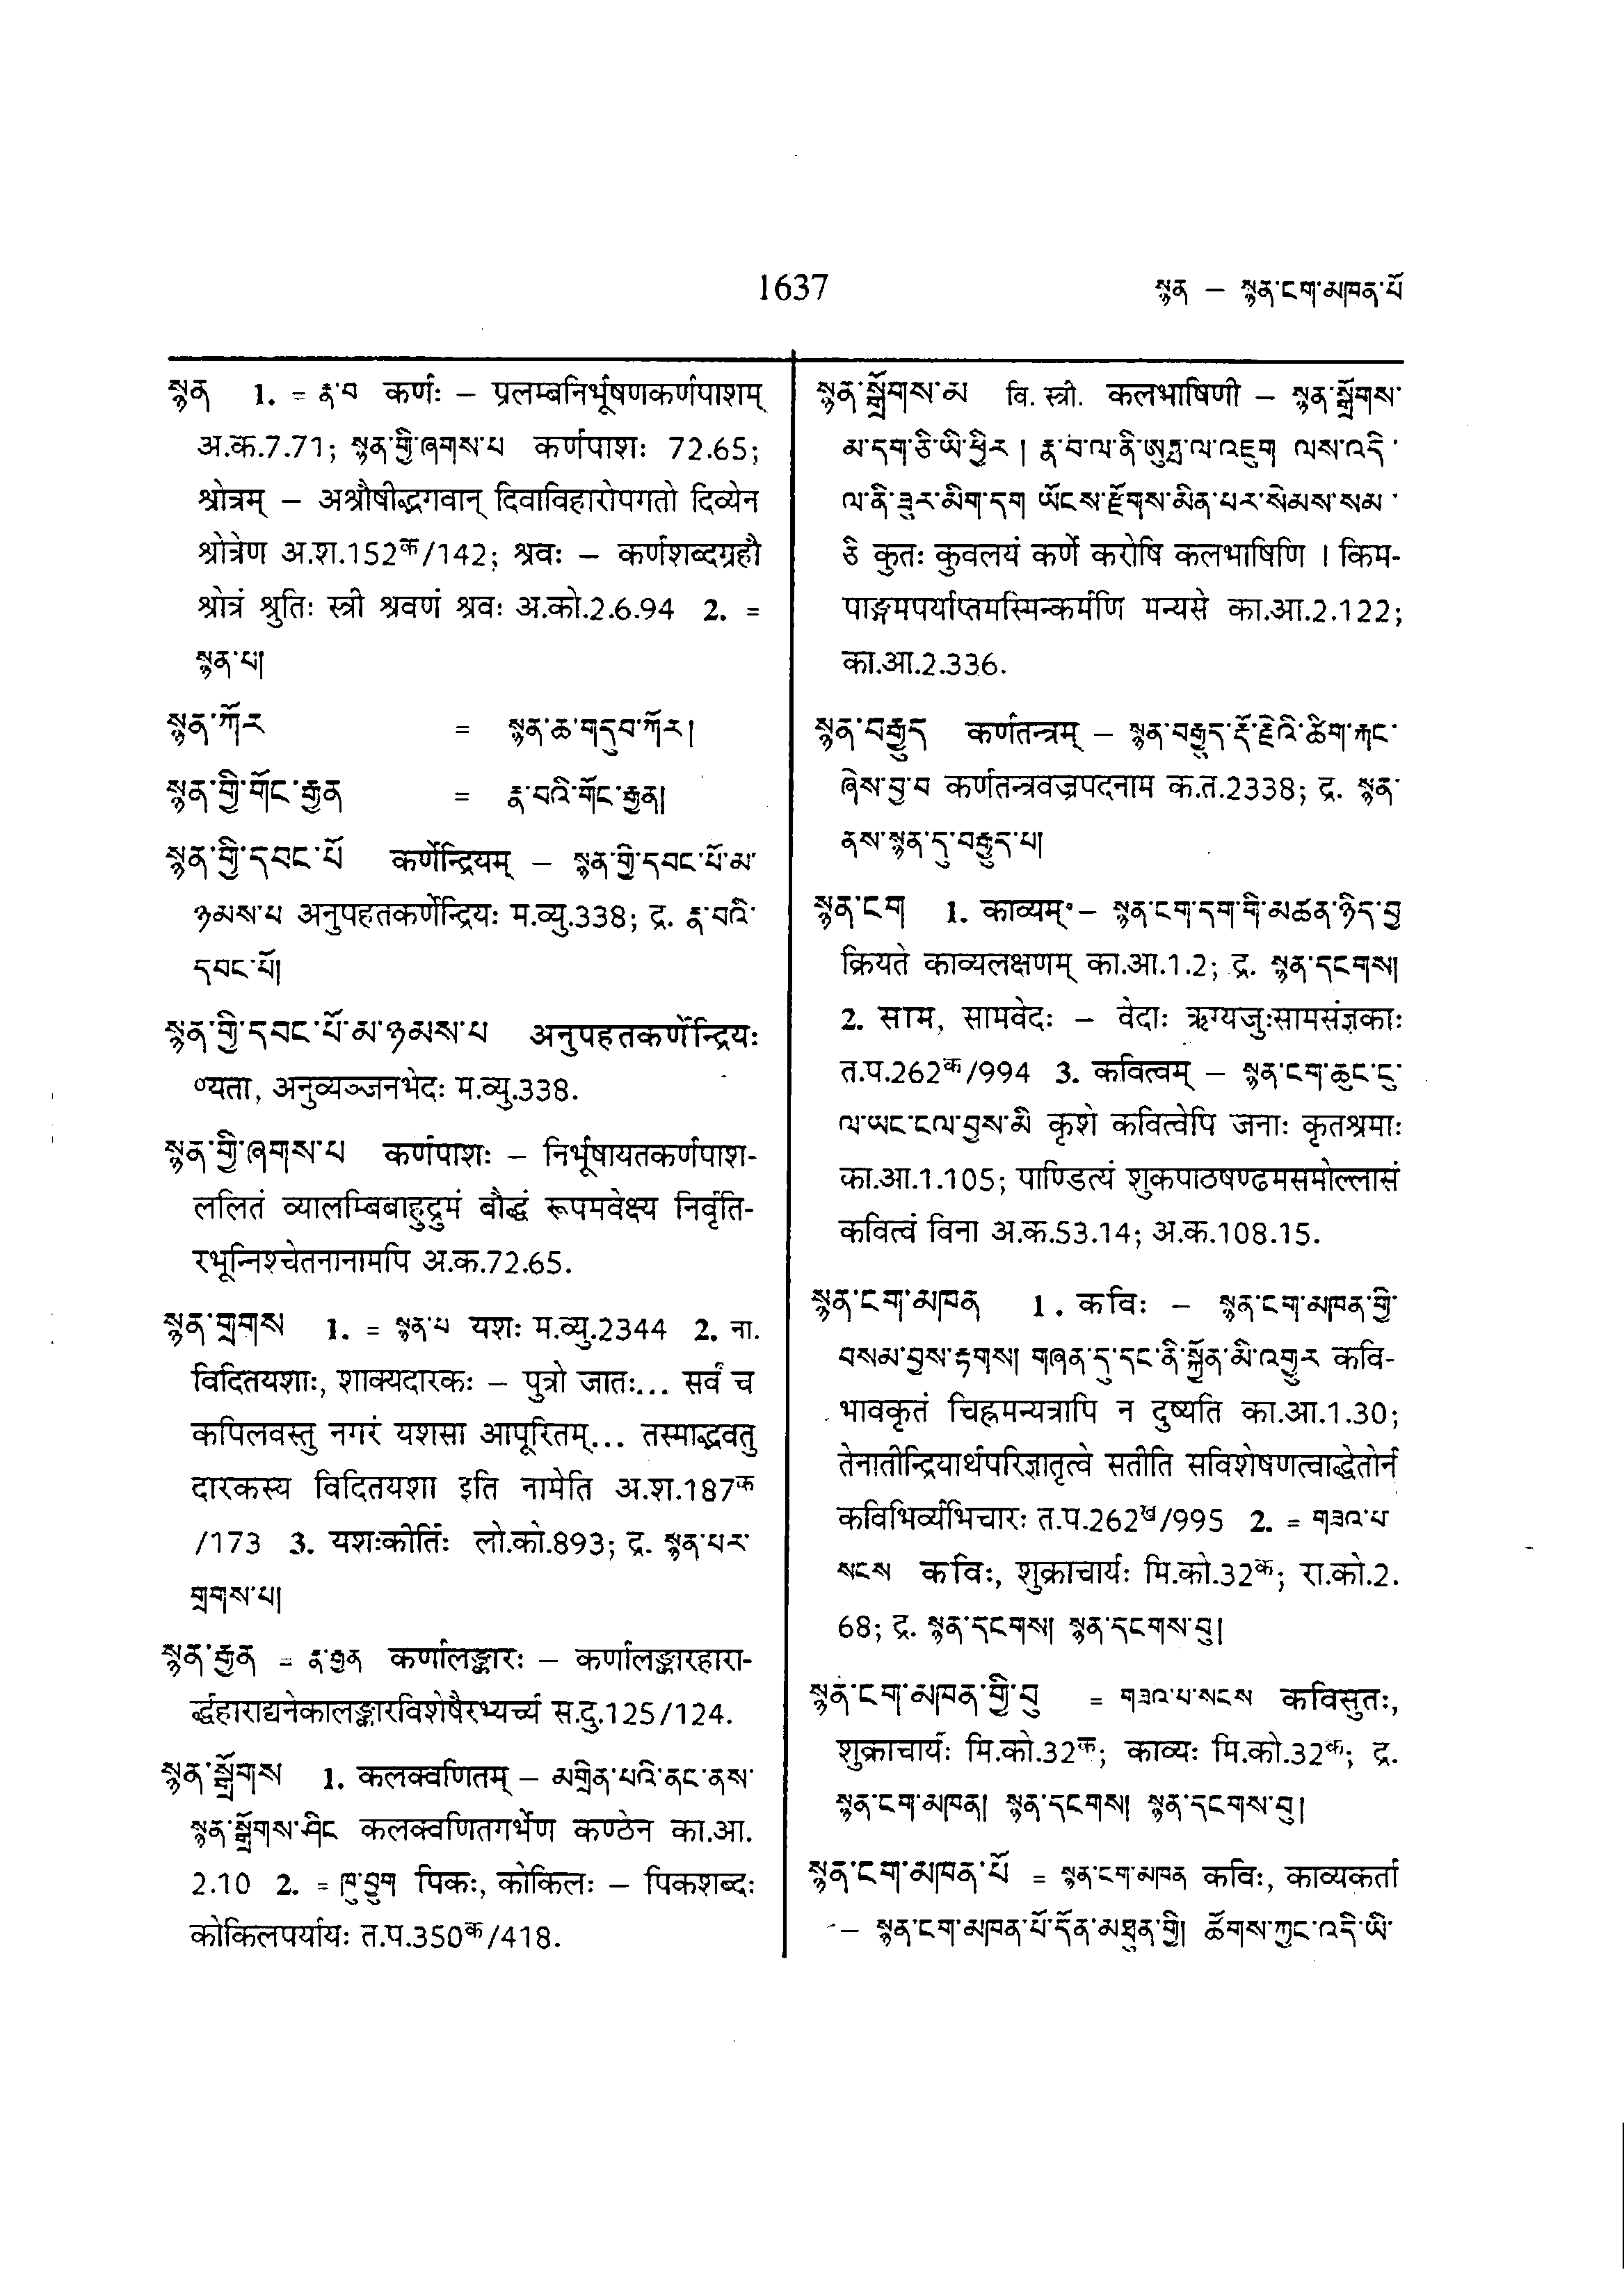 1637
སྙན – སྙན་ངག་མཁན་པོ
སྙན 1. = རྣ་བ कर्णः – प्रलम्बनिर्भूषणकर्णपाशम्
अ.क.7.71; སྙན་གྱི་ཞགས་པ कर्णपाशः 72.65;
श्रोत्रम् – अश्रौषीद्भगवान् दिवाविहारोपगतो दिव्येन
श्रोत्रेण अ.श.152क/142; श्रवः – कर्णशब्दग्रहौ
श्रोत्रं श्रुतिः स्त्री श्रवणं श्रवः अ.को.2.6.94 2. =
སྙན་པ།
སྙན་ཀོར = སྙན་ཆ་གདུབ་ཀོར།
སྙན་གྱི་གོང་རྒྱན = རྣ་བའི་གོང་རྒྱན།
སྙན་གྱི་དབང་པོ कर्णेन्द्रियम् – སྙན་གྱི་དབང་པོ་མ་
ཉམས་པ अनुपहतकर्णेन्द्रियः म.व्यु.338; द्र. རྣ་བའི་
དབང་པོ།
སྙན་གྱི་དབང་པོ་མ་ཉམས་པ अनुपहतकर्णेन्द्रियः
०यता, अनुव्यञ्जनभेदः म.व्यु.338.
སྙན་གྱི་ཞགས་པ कर्णपाशः – निर्भूषायतकर्णपाश-
ललितं व्यालम्बिबाहुद्रुमं बौद्धं रूपमवेक्ष्य निर्वृति-
रभून्निश्चेतनानामपि अ.क.72.65.
སྙན་གྲགས 1. = སྙན་པ यशः म.व्यु.2344 2. ना.
विदितयशाः, शाक्यदारकः – पुत्रो जातः... सर्वं च
कपिलवस्तु नगरं यशसा आपूरितम्... तस्माद्भवतु
दारकस्य विदितयशा इति नामेति अ.श.187क
/173 3. यशःकीर्तिः लो.को.893; द्र. སྙན་པར་
གྲགས་པ།
སྙན་རྒྱན = རྣ་རྒྱན कर्णालङ्कारः – कर्णालङ्कारहारा-
र्द्धहाराद्यनेकालङ्कारविशेषैरभ्यर्च्य स.दु.125/124.
སྙན་སྒྲོགས 1. कलक्वणितम् – མགྲིན་པའི་ནང་ནས་
སྙན་སྒྲོགས་ཤིང कलक्वणितगर्भेण कण्ठेन का.आ.
2.10 2. = ཁུ་བྱུག पिकः, कोकिलः – पिकशब्दः
कोकिलपर्यायः त.प.350क/418.
སྙན་སྒྲོགས་མ वि. स्त्री. कलभाषिणी – སྙན་སྒྲོགས་
མ་དག་ཅི་ཡི་ཕྱིར། རྣ་བ་ལ་ནི་ཨུཏྤ་ལ་འཇུག ལས་འདི་
ལ་ནི་ཟུར་མིག་དག ཡོངས་རྫོགས་མིན་པར་སེམས་སམ་
ཅི कुतः कुवलयं कर्णे करोषि कलभाषिणि । किम-
पाङ्गमपर्याप्तमस्मिन्कर्मणि मन्यसे का.आ.2.122;
का.आ.2.336.
སྙན་བརྒྱུད कर्णतन्त्रम् – སྙན་བརྒྱུད་རྡོ་རྗེའི་ཚིག་རྐང་
ཞེས་བྱ་བ कर्णतन्त्रवज्रपदनाम क.त.2338; द्र. སྙན་
ནས་སྙན་དུ་བརྒྱུད་པ།
སྙན་ངག 1. काव्यम् – སྙན་ངག་དག་གི་མཚན་ཉིད་བྱ
क्रियते काव्यलक्षणम् का.आ.1.2; द्र. སྙན་དངགས།
2. साम, सामवेदः – वेदाः ऋग्यजुःसामसंज्ञकाः
त.प.262क/994 3. कवित्वम् – སྙན་ངག་ཆུང་ངུ་
ལ་ཡང་ངལ་བྱས་མི कृशे कवित्वेपि जनाः कृतश्रमाः
का.आ.1.105; पाण्डित्यं शुकपाठषण्ढमसमोल्लासं
कवित्वं विना अ.क.53.14; अ.क.108.15.
སྙན་ངག་མཁན 1. कविः – སྙན་ངག་མཁན་གྱི་
བསམ་བྱས་རྟགས། གཞན་དུ་དང་ནི་སྐྱོན་མི་འགྱུར कवि-
भावकृतं चिह्नमन्यत्रापि न दुष्यति का.आ.1.30;
तेनातीन्द्रियार्थपरिज्ञातृत्वे सतीति सविशेषणत्वाद्धेतोर्न
कविभिर्व्यभिचारः त.प.262ख/995 2. = གཟའ་པ་
སངས कविः, शुक्राचार्यः मि.को.32क; रा.को.2.
68; द्र. སྙན་དངགས། སྙན་དངགས་བུ།
སྙན་ངག་མཁན་གྱི་བུ = གཟའ་པ་སངས कविसुतः,
शुक्राचार्यः मि.को.32क; काव्यः मि.को.32क; द्र.
སྙན་ངག་མཁན། སྙན་དངགས། སྙན་དངགས་བུ།
སྙན་ངག་མཁན་པོ = སྙན་ངག་མཁན कविः, काव्यकर्ता
– སྙན་ངག་མཁན་པོ་དོན་མཐུན་གྱི། ཚོགས་ཀྱང་འདི་ཡི་